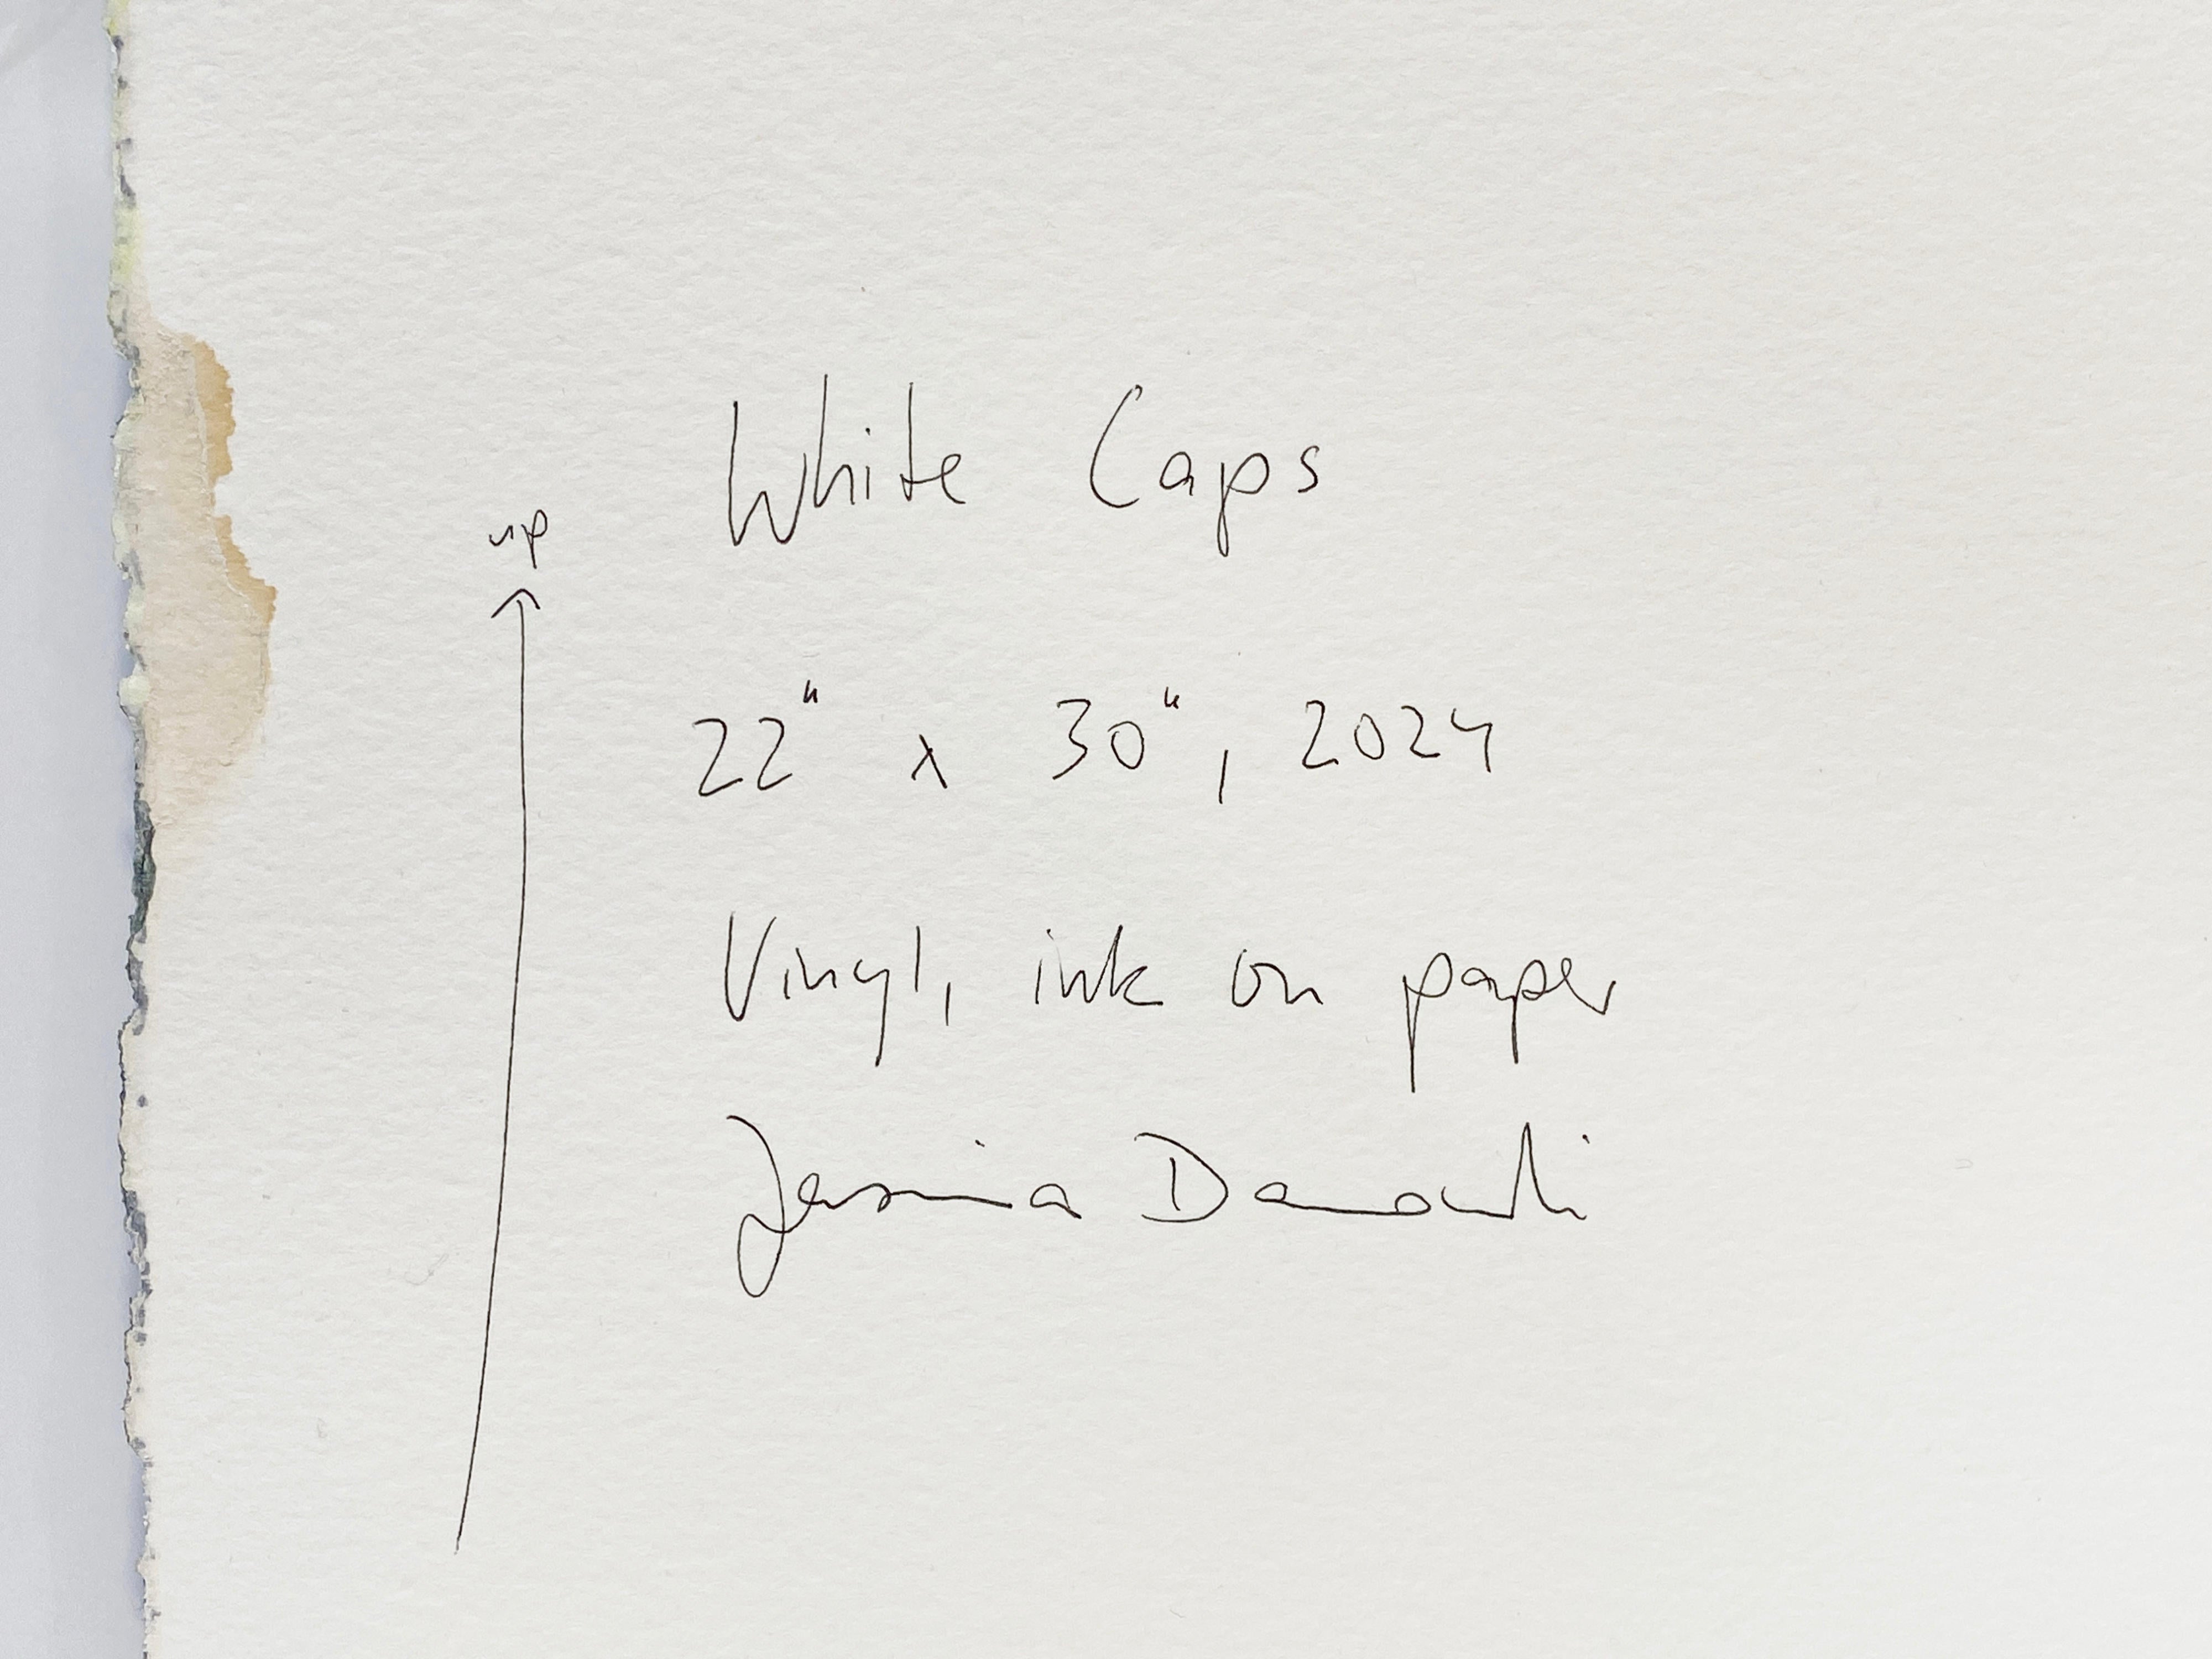 up
White Caps
22" x 30", 2024
Vinyl, ink on paper